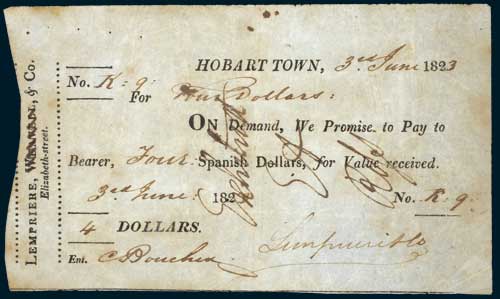 HOBART TOWN, 3rd June 1823
No. K. 9.
For Four Dollars:
ON Demand, We Promise to Pay to
Bearer, Four Spanish Dollars, for Value received.
3rd June 182 No. K. 9.
4 DOLLARS.
Ent. C Bouchier Lempriere & Co
LEMPRIERE, & Co.
Elizabeth-street.